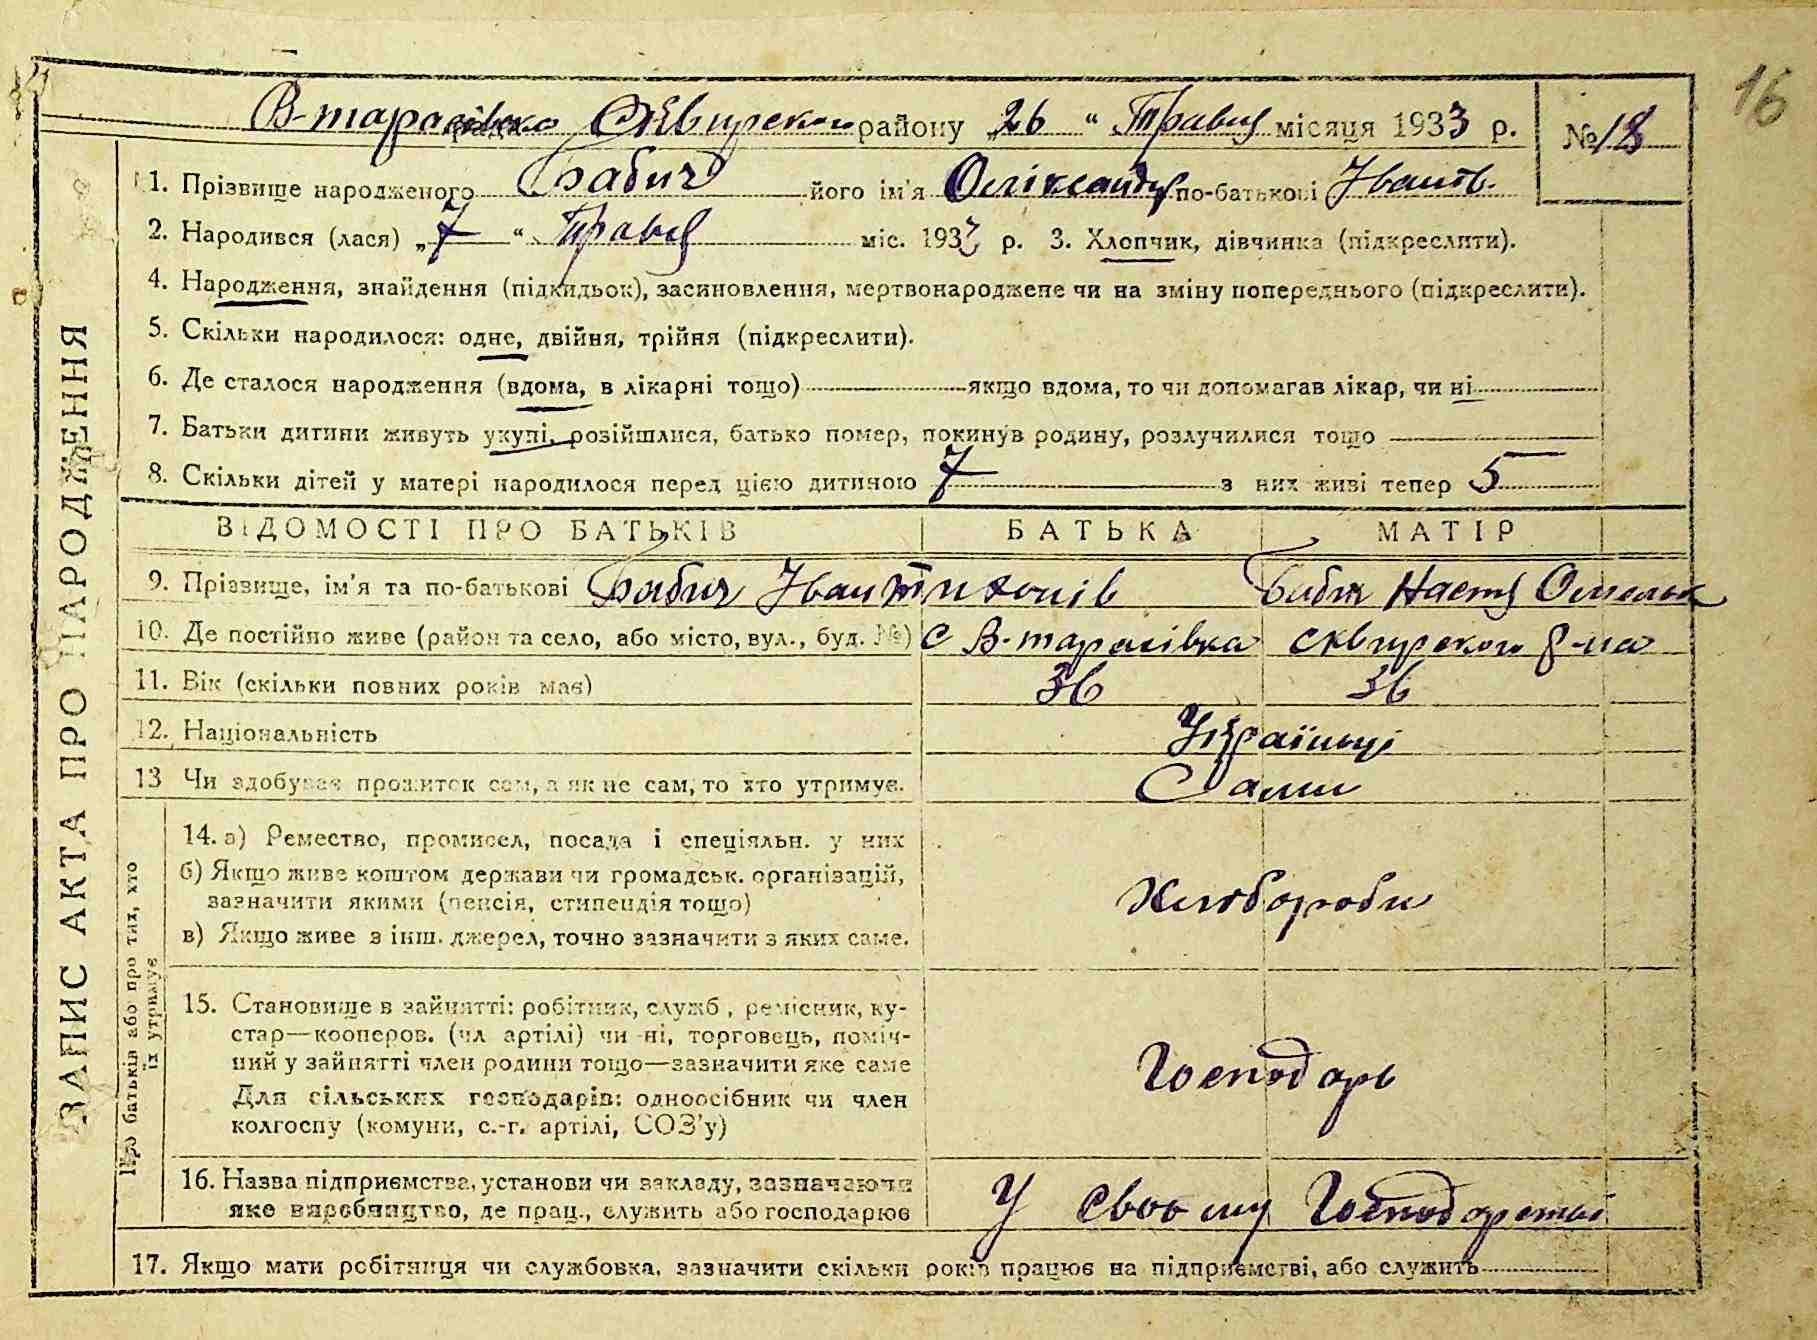 16
В-тарасівка Сквирского району „26 “ Травня місяця 1933 р. № 18
1. Прізвище народженого Бабич його ім'я Олександр по-батькові Іванов.
2. Народився (лася) „7 “ Травня міс. 1933 р. 3. Хлопчик, дівчинка (підкреслити).
4. Народження, знайдення (підкидьок), засиновлення, мертвонароджене чи на зміну попереднього (підкреслити).
5. Скільки народилося: одне, двійня, трійня (підкреслити).
6. Де сталося народження (вдома, в лікарні тощо) якщо вдома, то чи допомагав лікар, чи ні
7. Батьки дитини живуть укупі, розійшлися, батько помер, покинув родину, розлучилися тощо
8. Скільки дітей у матері народилося перед цією дитиною 7 з них живі тепер 5
ВІДОМОСТІ ПРО БАТЬКІВ БАТЬКА МАТІР
9. Прізвище, ім'я та по-батькові Бабич Іван Тихонів Бабич Настя Омельк
10. Де постійно живе (район та село, або місто, вул., буд. №) С В-тарасівка сквирского р-на
11. Вік (скільки повних років має) 36 36
12. Національність Українці
13 Чи здобуває прожиток сам, а як не сам, то хто утримує. Сами
14. а) Ремество, промисел, посада і спеціяльн. у них
б) Якщо живе коштом держави чи громадськ. організацій,
зазначити якими (пенсія, стипендія тощо) Хлібороби
в) Якщо живе з інш. джерел, точно зазначити з яких саме.
15. Становище в зайнятті: робітник, служб , ремісник, ку-
стар—кооперов. (чл артілі) чи ні, торговець, поміч-
ний у зайнятті член родини тощо—зазначити яке саме Господарь
Для сільських господарів: одноосібник чи член
колгоспу (комуни, с.-г. артілі, СОЗ'у)
16. Назва підприємства, установи чи закладу, зазначаючи
яке виробництво, де прац., служить або господарює У своому Господарстві
17. Якщо мати робітниця чи службовка, зазначити скільки років працює на підприємстві, або служить
ЗАПИС АКТА ПРО НАРОДЖЕННЯ
Про батьків або про тих, хто
їх утримує